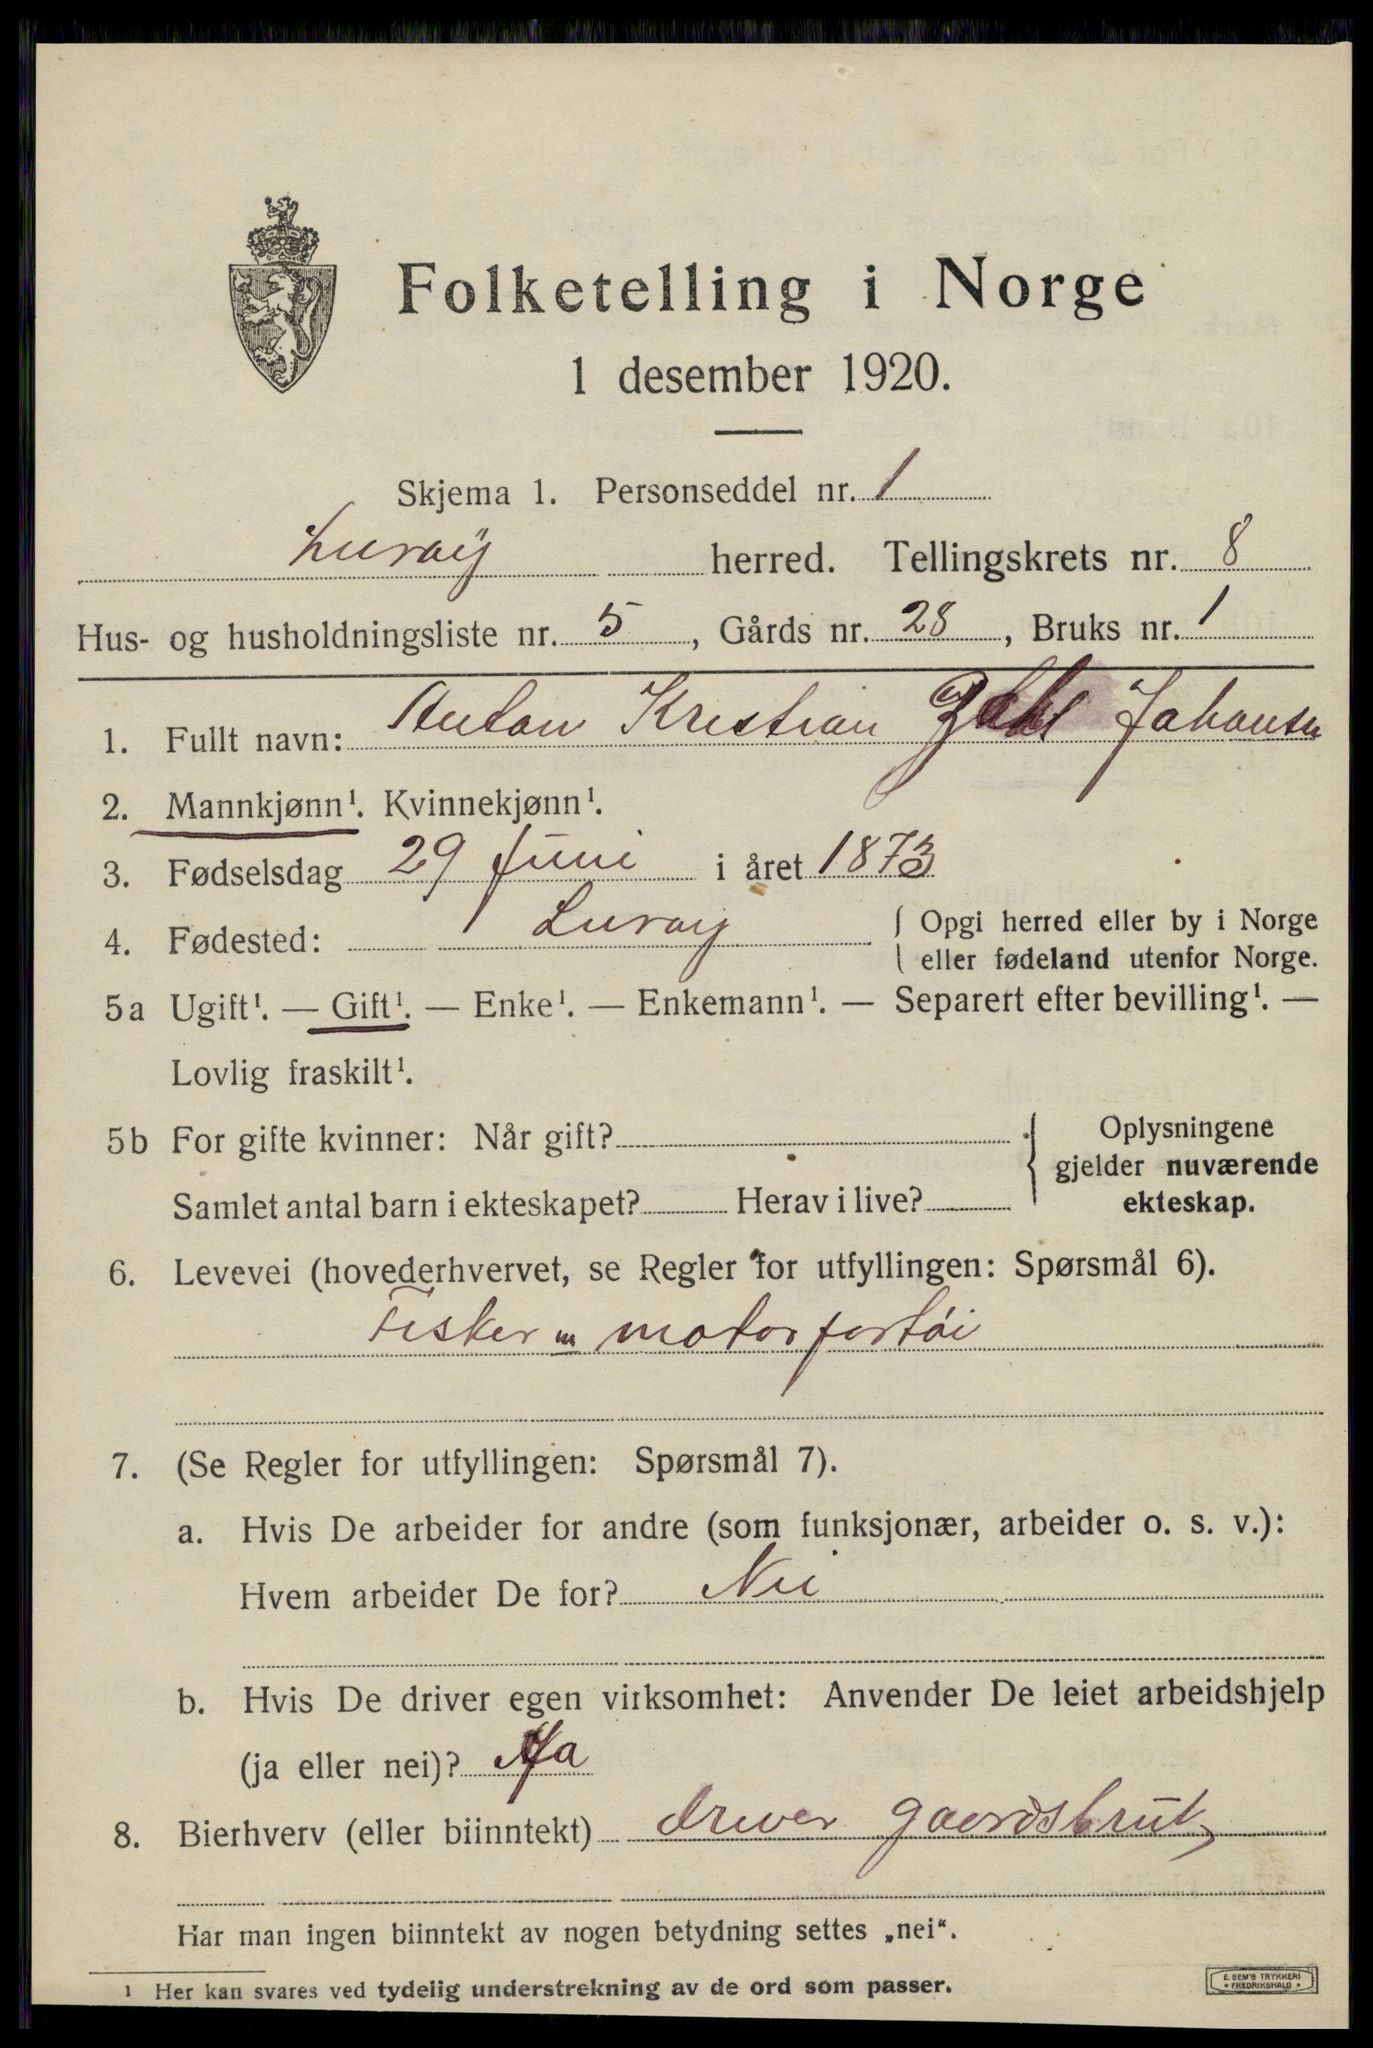 Folketelling i Norge
1 desember 1920.
Skjema 1. Personseddel nr. 1
Lurøy herred. Tellingskrets nr. 8
Hus- og husholdningsliste nr. 5, Gårds nr. 28, Bruks nr. 1
1. Fullt navn: Anton Kristian Johansen
2. Mannkjønn¹. Kvinnekjønn¹.
3. Fødselsdag 29 Juni i året 1873
4. Fødested: Lurøy { Opgi herred eller by i Norge
eller fødeland utenfor Norge.
5a Ugift¹. — Gift¹. — Enke¹. — Enkemann¹. — Separert efter bevilling¹. —
Lovlig fraskilt¹.
5b For gifte kvinner: Når gift? { Oplysningene
gjelder nuværende
Samlet antal barn i ekteskapet? Herav i live? ekteskap.
6. Levevei (hovederhvervet, se Regler for utfyllingen: Spørsmål 6).
Fisker m motorfartøi
7. (Se Regler for utfyllingen: Spørsmål 7).
a. Hvis De arbeider for andre (som funksjonær, arbeider o. s. v.):
Hvem arbeider De for? Nei
b. Hvis De driver egen virksomhet: Anvender De leiet arbeidshjelp
(ja eller nei)? Ja
8. Bierhverv (eller biinntekt) driver gaardsbruk
Har man ingen biinntekt av nogen betydning settes „nei“.
1 Her kan svares ved tydelig understrekning av de ord som passer.
E. SEM'S TRYKKERI
• FREDRIKSHALD •